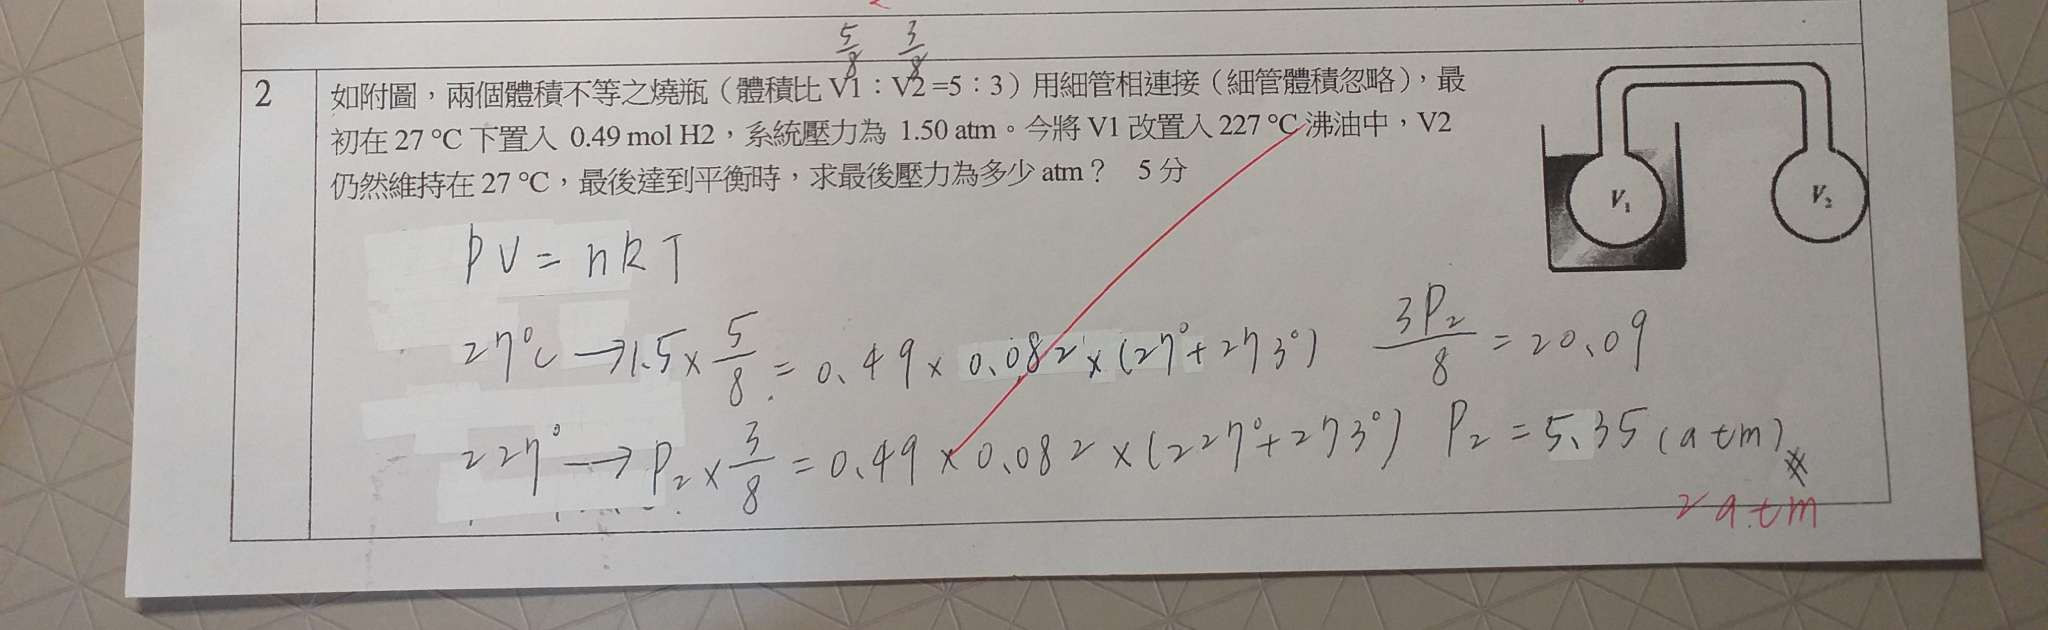 5/8 3/8
2
如附圖，兩個體積不等之燒瓶（體積比 V1：V2 =5：3）用細管相連接（細管體積忽略），最
初在 27 °C 下置入 0.49 mol H2，系統壓力為 1.50 atm。今將 V1 改置入 227 °C 沸油中，V2
仍然維持在 27 °C，最後達到平衡時，求最後壓力為多少 atm？ 5 分
V₁
V₂
PV = nRT
27°C → 1.5 × 5/8 = 0.49 × 0.082 × (27° + 273°)
3P₂/8 = 20.09
227° → P₂ × 3/8 = 0.49 × 0.082 × (227° + 273°)
P₂ = 5.35 (atm)
2 atm